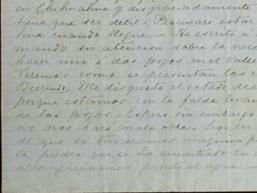 en Chihuahua y desgraciadamente
tiene que ser debil. Procurare estar
cuando llegue. He escrito a
mando su atencion sobre la nece
hacer uno ó dos pozos en el Valle
Veremos como se presentan las c
Me disgusta el estado del
porque estamos con la falda levan
de los pozos. Espero sin embargo
no nos hará mala obra. Siqu en
de que si tuvieramos maquina p
la piedra que se ha encontrado en
pronto el agua